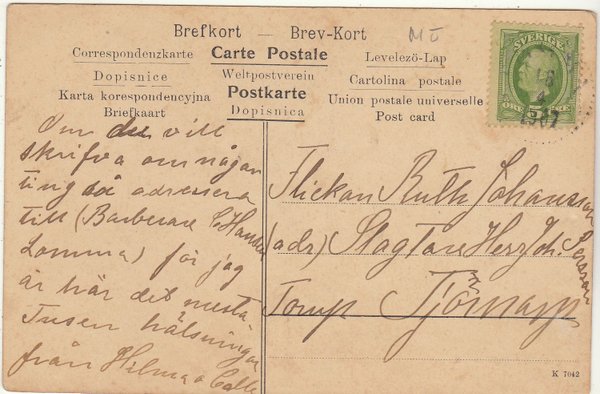 Brefkort — Brev-Kort
MJ
Correspondenzkarte Carte Postale Levelező-Lap
Dopisnice Weltpostverein Cartolina postale
Karta korespondencyjna Postkarte Union postale universelle
Briefkaart Dopisnica Post card
SVERIGE
16
4
1907
Om du vill
skrifva om någon
ting så adressera
till (Barberare C. Hansen
Lomma) för jag
är här det mesta
Tusen hälsningar
från Hilma o Calle
Flickan Ruth Johansson
(adr) Slagtare Herr Joh. Persson
Torup Tjörnarp
K 7042